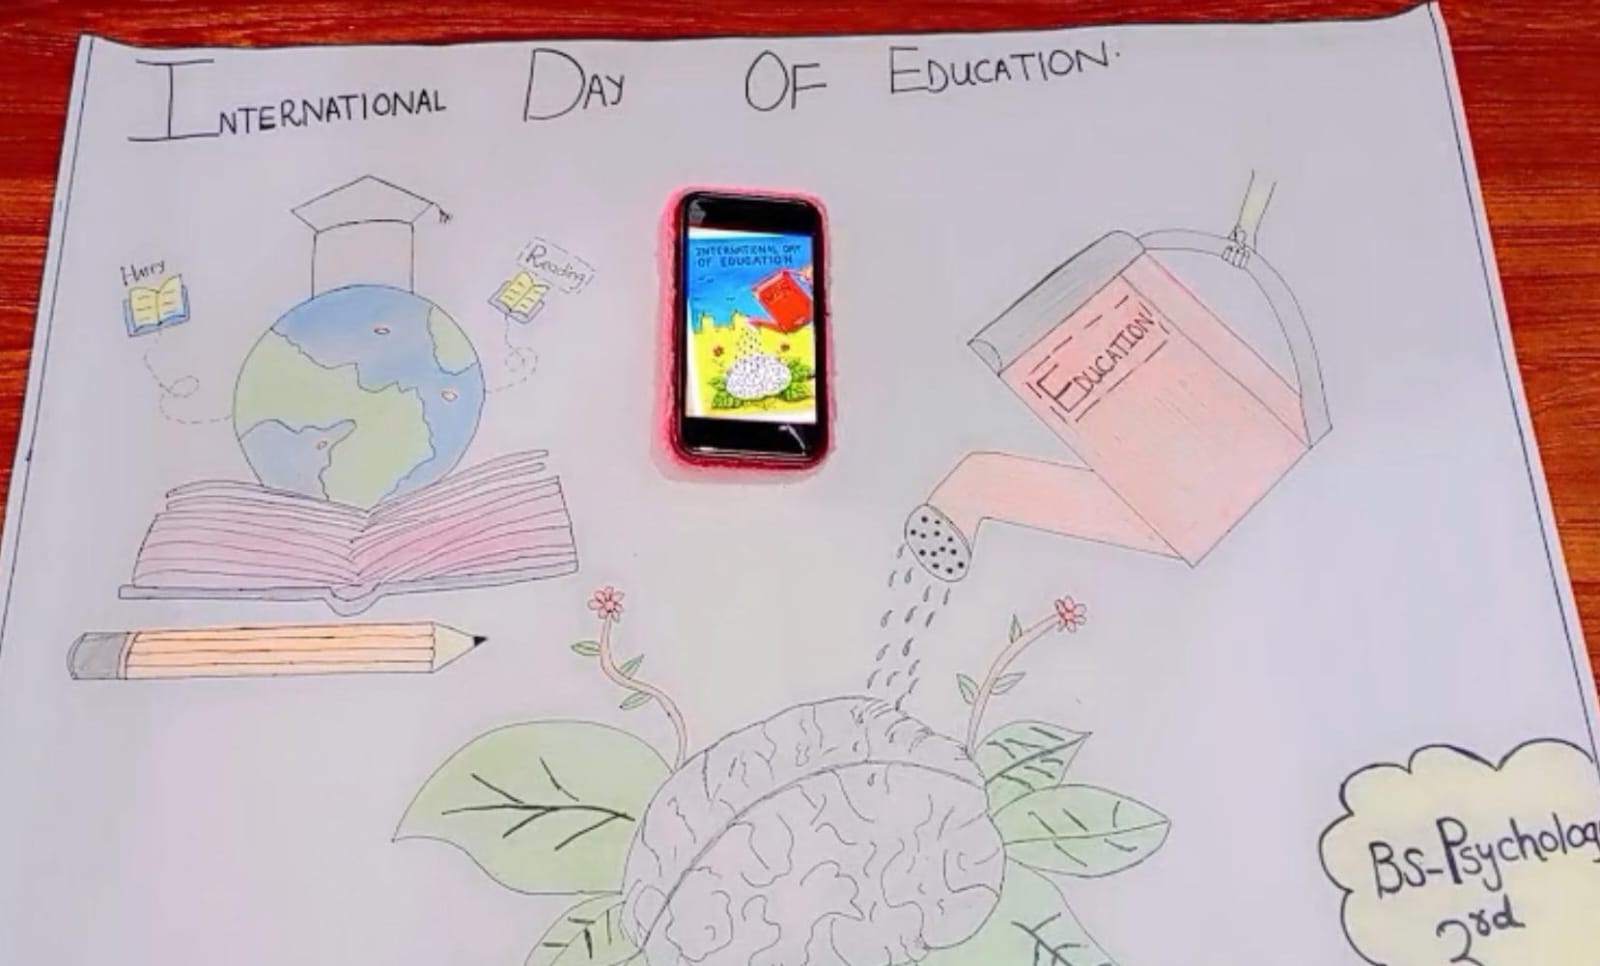 INTERNATIONAL DAY OF EDUCATION.
Harry
Reading
INTERNATIONAL DAY
OF EDUCATION
EDUCATION
BS-Psycholog
3rd